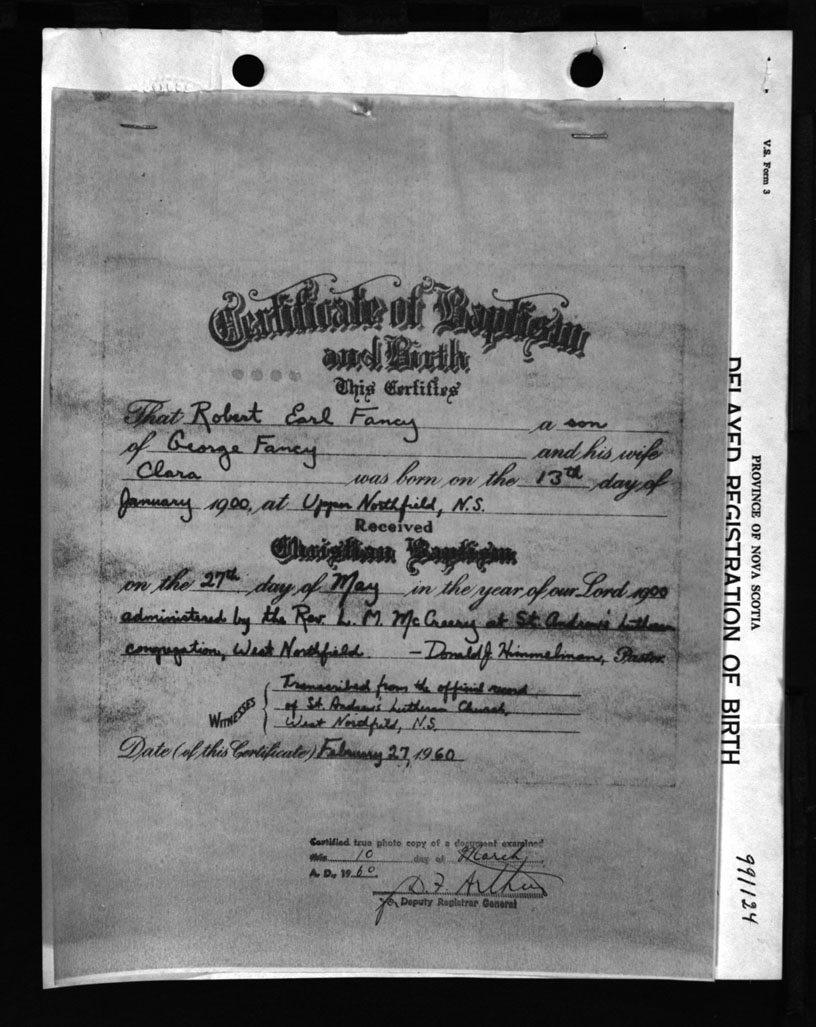 Certificate of Baptism
and Birth
This Certifies
That Robert Earl Fancy a son
of George Fancy and his wife
Clara was born on the 13th day of
January 1900, at Upper Northfield, N.S.
Received
Christian Baptism
on the 27th day of May in the year of our Lord 1900
administered by the Rev. L. M. McCreery at St. Andrew's Lutheran
congregation, West Northfield. — Donald J. Himmelman, Pastor.
WITNESSES
Transcribed from the official record
of St. Andrew's Lutheran Church,
West Northfield, N.S.
Date (of this Certificate) February 27, 1960
Certified true photo copy of a document examined
this 10 day of March
A. D., 1960
D. F. Arthur
for Deputy Registrar General
V.S. Form 3
PROVINCE OF NOVA SCOTIA
DELAYED REGISTRATION OF BIRTH
991124